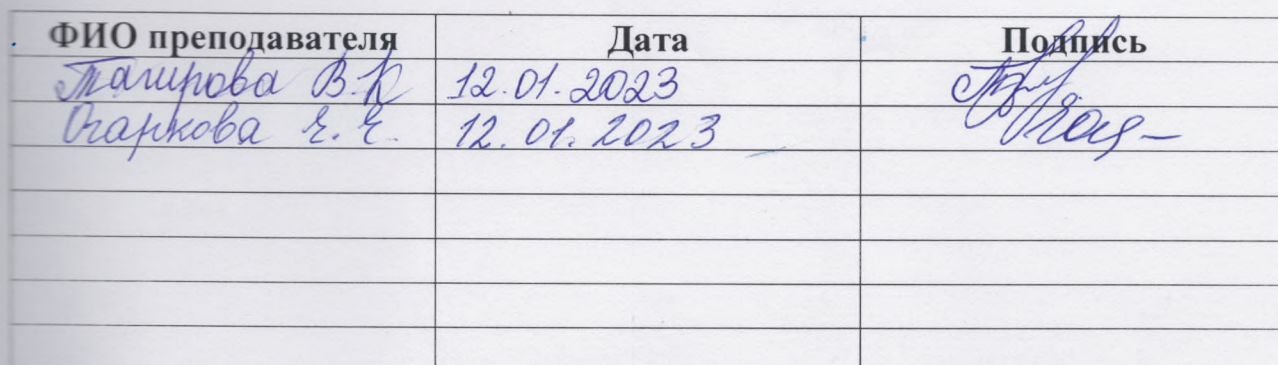 ФИО преподавателя Дата Подпись
Тагирова В.К 12.01.2023
Огаркова 12.01.2023